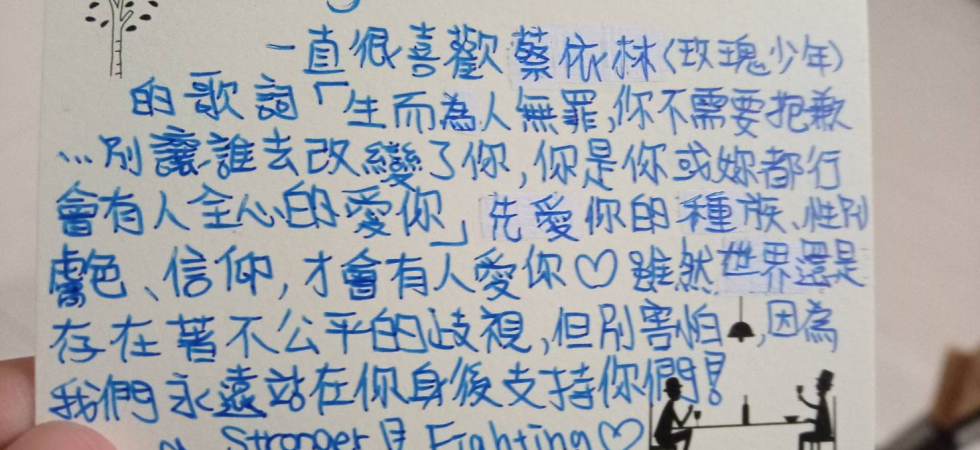 一直很喜歡蔡依林〈玫瑰少年〉
的歌詞「生而為人無罪,你不需要抱歉
...別讓誰去改變了你,你是你或妳都行
會有人全心的愛你」先愛你的種族、性別
膚色、信仰,才會有人愛你♡雖然世界還是
存在著不公平的歧視,但別害怕,因為
我們永遠站在你身後支持你們!
Stronger Fighting♡